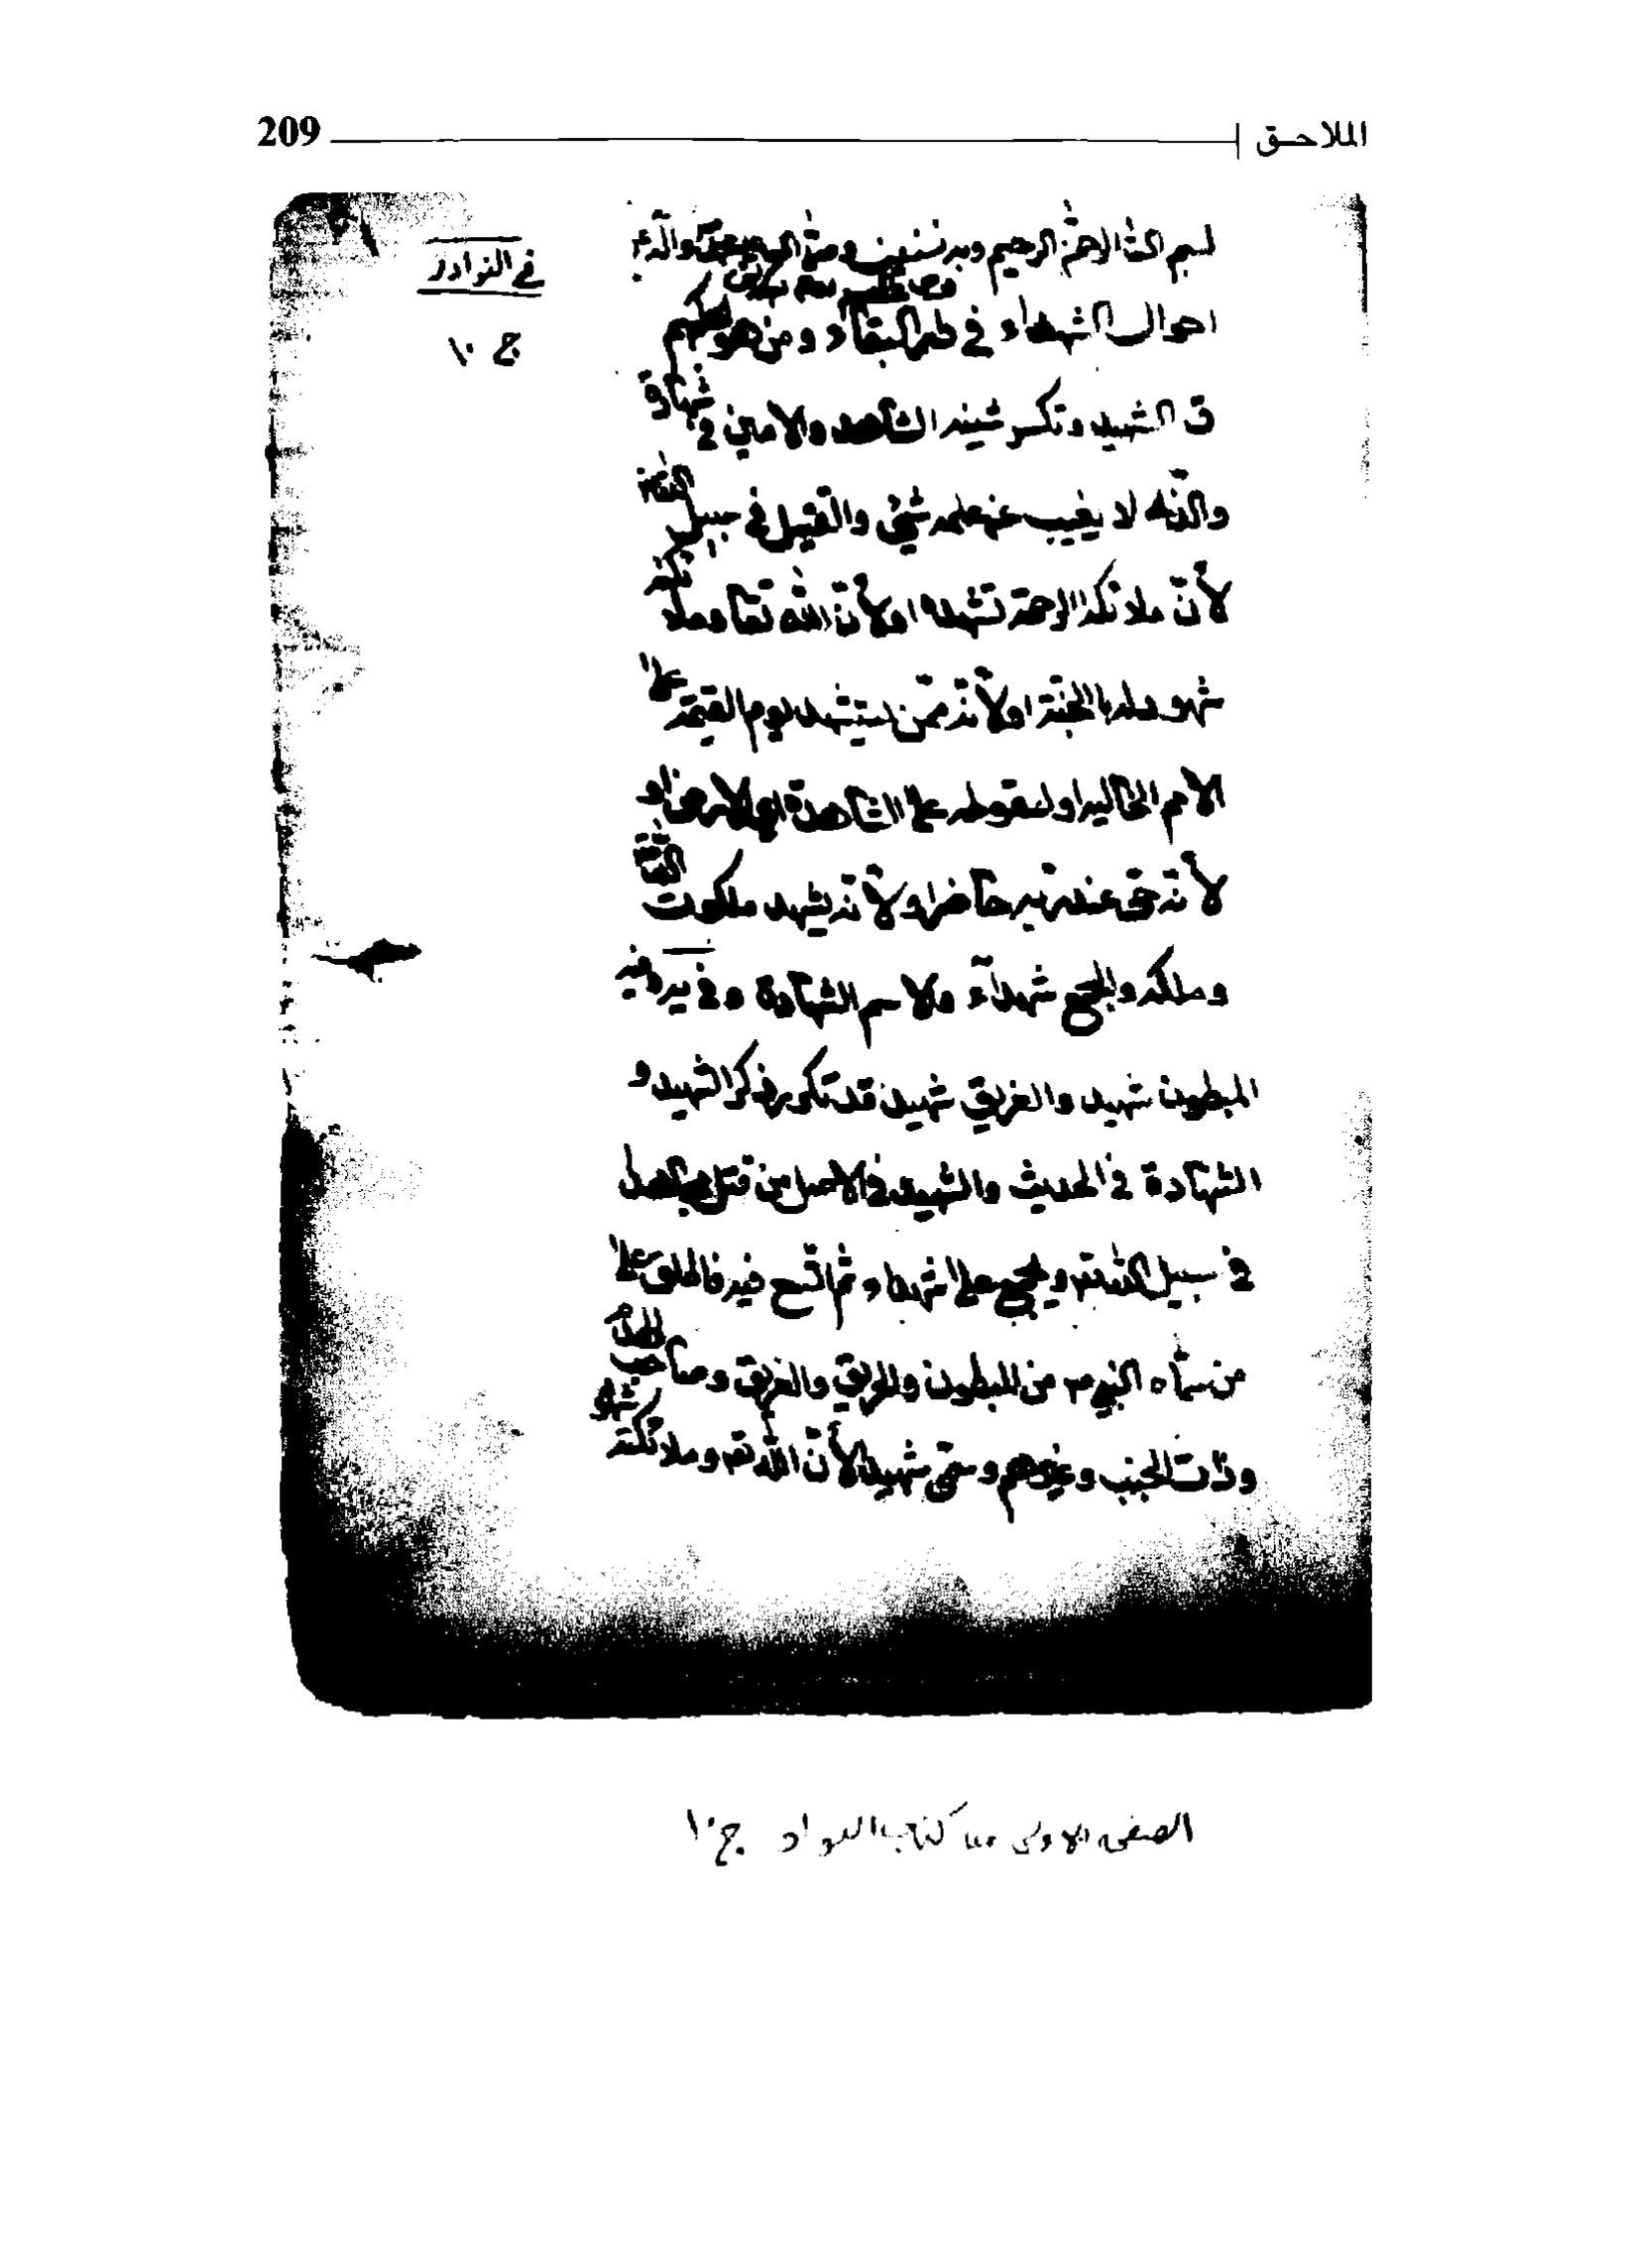 الملاحق 209
في النوادر
ج ١٠
بسم الله الرحمن الرحيم وبه نستعين وصلى الله على محمد وآله
احوال الشهداء في طير البقاء ومن هو
ق الشهيد وتكسر شينه الشاهد والامين في شهادة
والذي لا يغيب عن علمه شيئ والقتيل في سبيل الله
لأنّ ملائكة الرحمة تشهده اولأنّ الله تعا وملائكته
شهود له بالجنة اولأنه ممّن يستشهد يوم القيمة على
الامم الخالية او لسقوطه على الشاهدة اي الارض او
لأنه حيّ عند ربه حاضر او لأنه يشهد ملكوت الله
وملكه والجمع شهدآء والاسم الشهادة و في يه فيه
المبطون شهيد والغريق شهيد قد تكرر ذكر الشهيد و
الشهادة في الحديث والشهيد في الاصل من قتل مجاهدا
في سبيل الله ته ويجمع على شهداء ثم اتسع فيه فاطلق على
من سمّاه النبي ص من المبطون والحريق والغريق وصاحب الهدم
وذات الجنب وغيرهم وسمّي شهيدا لأنّ الله ته وملائكته شهو
الصفحه الاولى من كتاب النوادر ج١٠